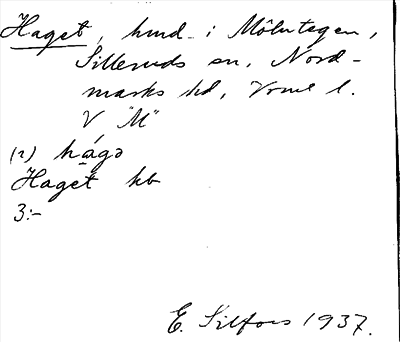 Haget, hmd i Mölntegen,
Silleruds sn, Nord-
marks hd, Vrml l.
V "M"
(2) hágə
Haget kb
3:-
E. Silfors 1937.